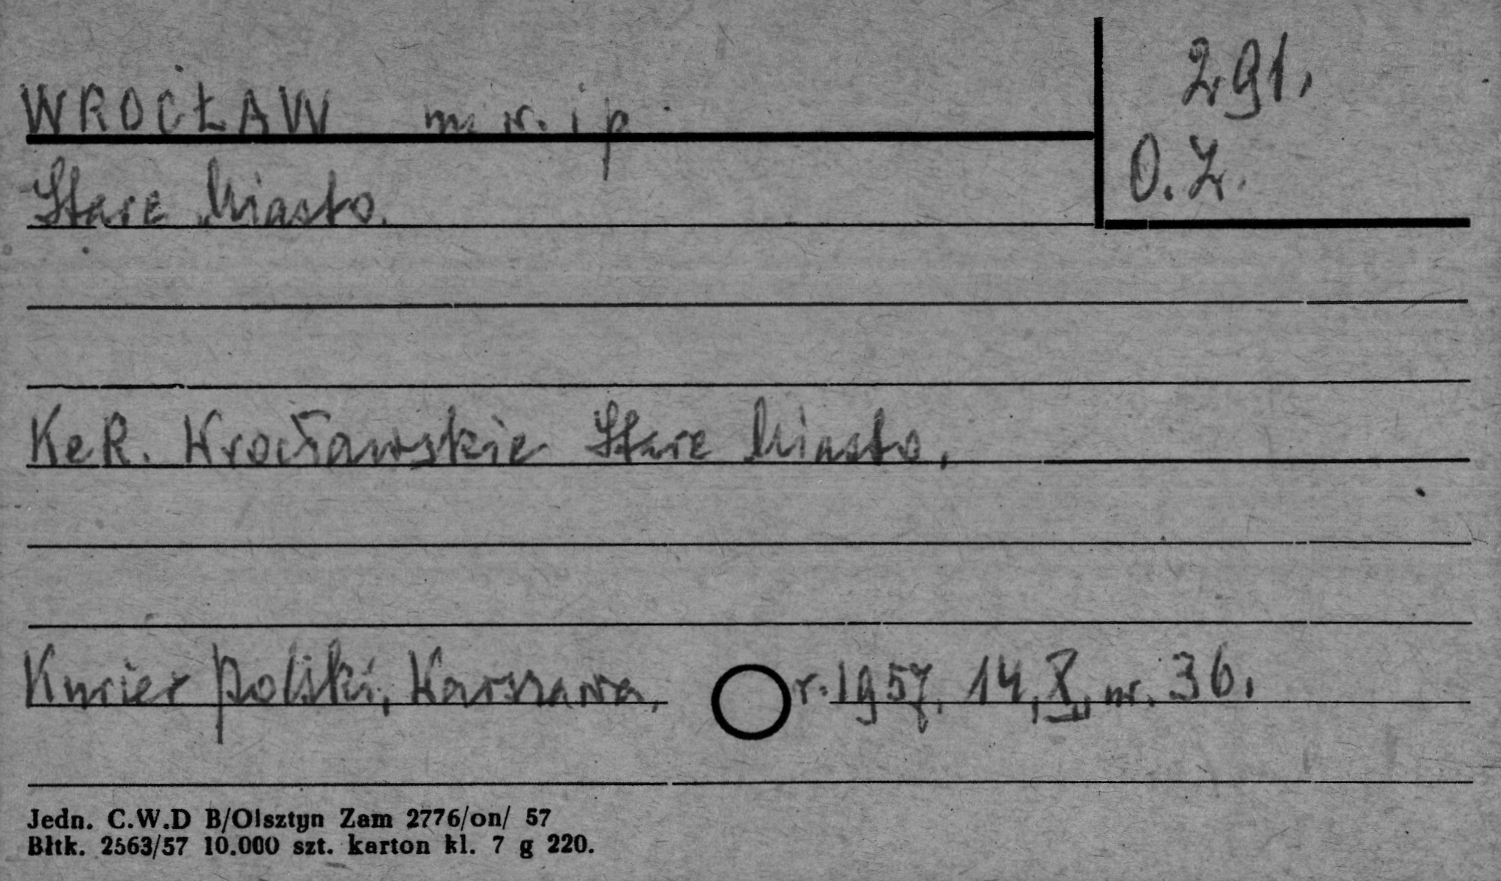 WROCŁAW m. w. i p.
291.
O. Z.
Stare Miasto.
KeR. Wrocławskie Stare Miasto.
Kurier Polski, Warszawa, r. 1957, 14, X, nr. 36.
Jedn. C.W.D B/Olsztyn Zam 2776/on/ 57
Błtk. 2563/57 10.000 szt. karton kl. 7 g 220.